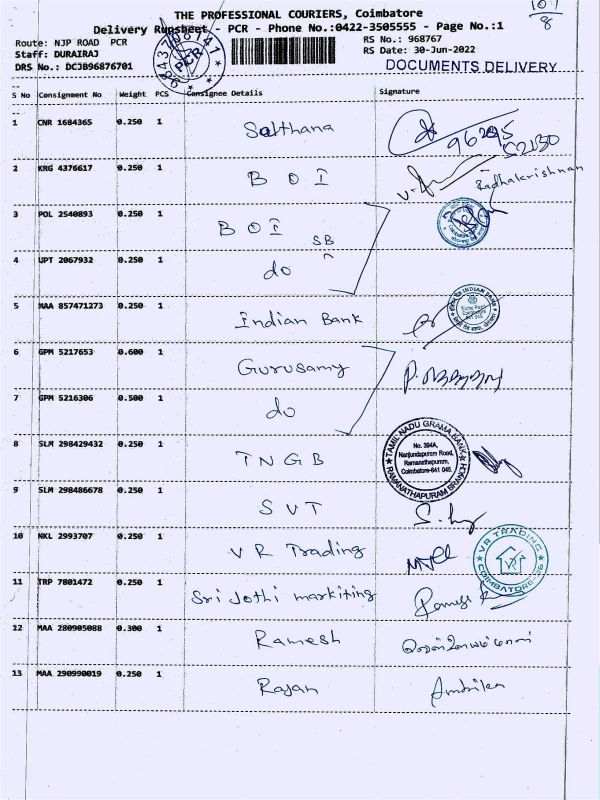 10/
8
THE PROFESSIONAL COURIERS, Coimbatore
Delivery Runsheet - PCR - Phone No.:0422-3505555 - Page No.:1
Route: NJP ROAD PCR
RS No.: 968767
Staff: DURAIRAJ
RS Date: 30-Jun-2022
DRS No.: DCJB96876701
DOCUMENTS DELIVERY
PCR
S No Consignment No Weight PCS Consignee Details Signature
1 CNR 1684365 0.250 1 Salthana
2 KRG 4376617 0.250 1 B O I Radhakrishnan
3 POL 2540893 0.250 1 B O I
SB
4 UPT 2067932 0.250 1 do
5 MAA 857471273 0.250 1 Indian Bank
INDIAN BANK
6 GPM 5217653 0.600 1 Gurusamy
7 GPM 5216306 0.500 1 do
8 SLM 298429432 0.250 1 T N G B
TAMIL NADU GRAMA BANK
No. 394A,
Nanjundapuram Road,
Ramanathapuram,
Coimbatore-641 045.
RAMANATHAPURAM BRANCH
9 SLM 298486678 0.250 1 S V T
10 NKL 2993707 0.250 1 V R Trading
VR TRADING
VR
COIMBATORE-36
11 TRP 7801472 0.250 1 Sri Jothi markiting
12 MAA 280905088 0.300 1 Ramesh
13 MAA 290990019 0.250 1 Rajan